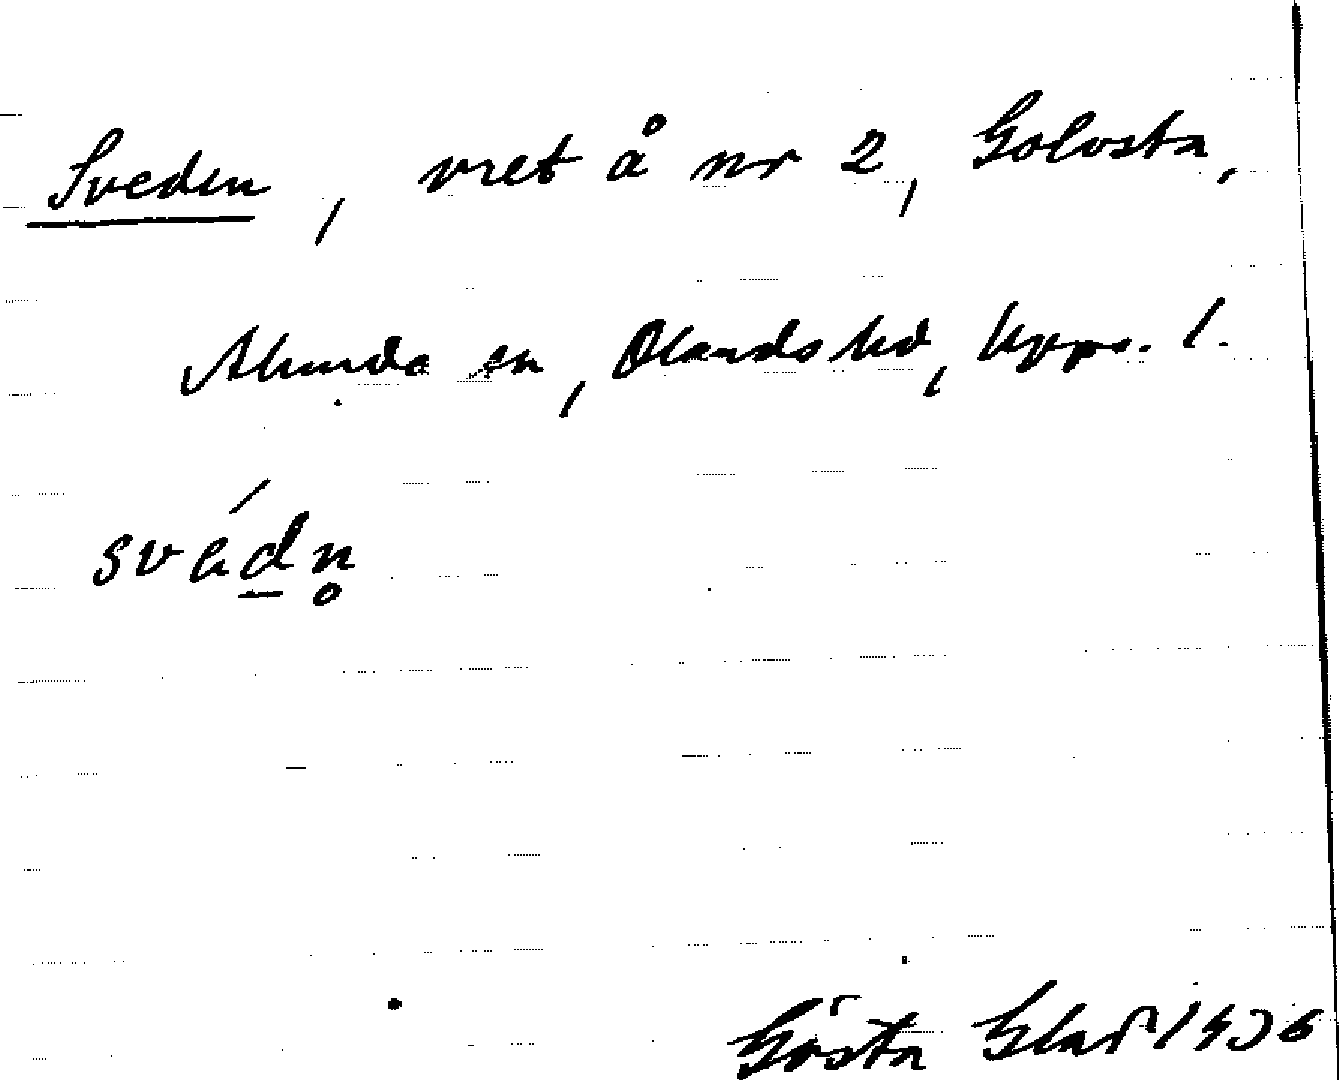 Sveden, vret å nr 2, Golvsta,
Alunda sn, Olands hd, Upps. l.
svádn̥
Gösta Glad 1936